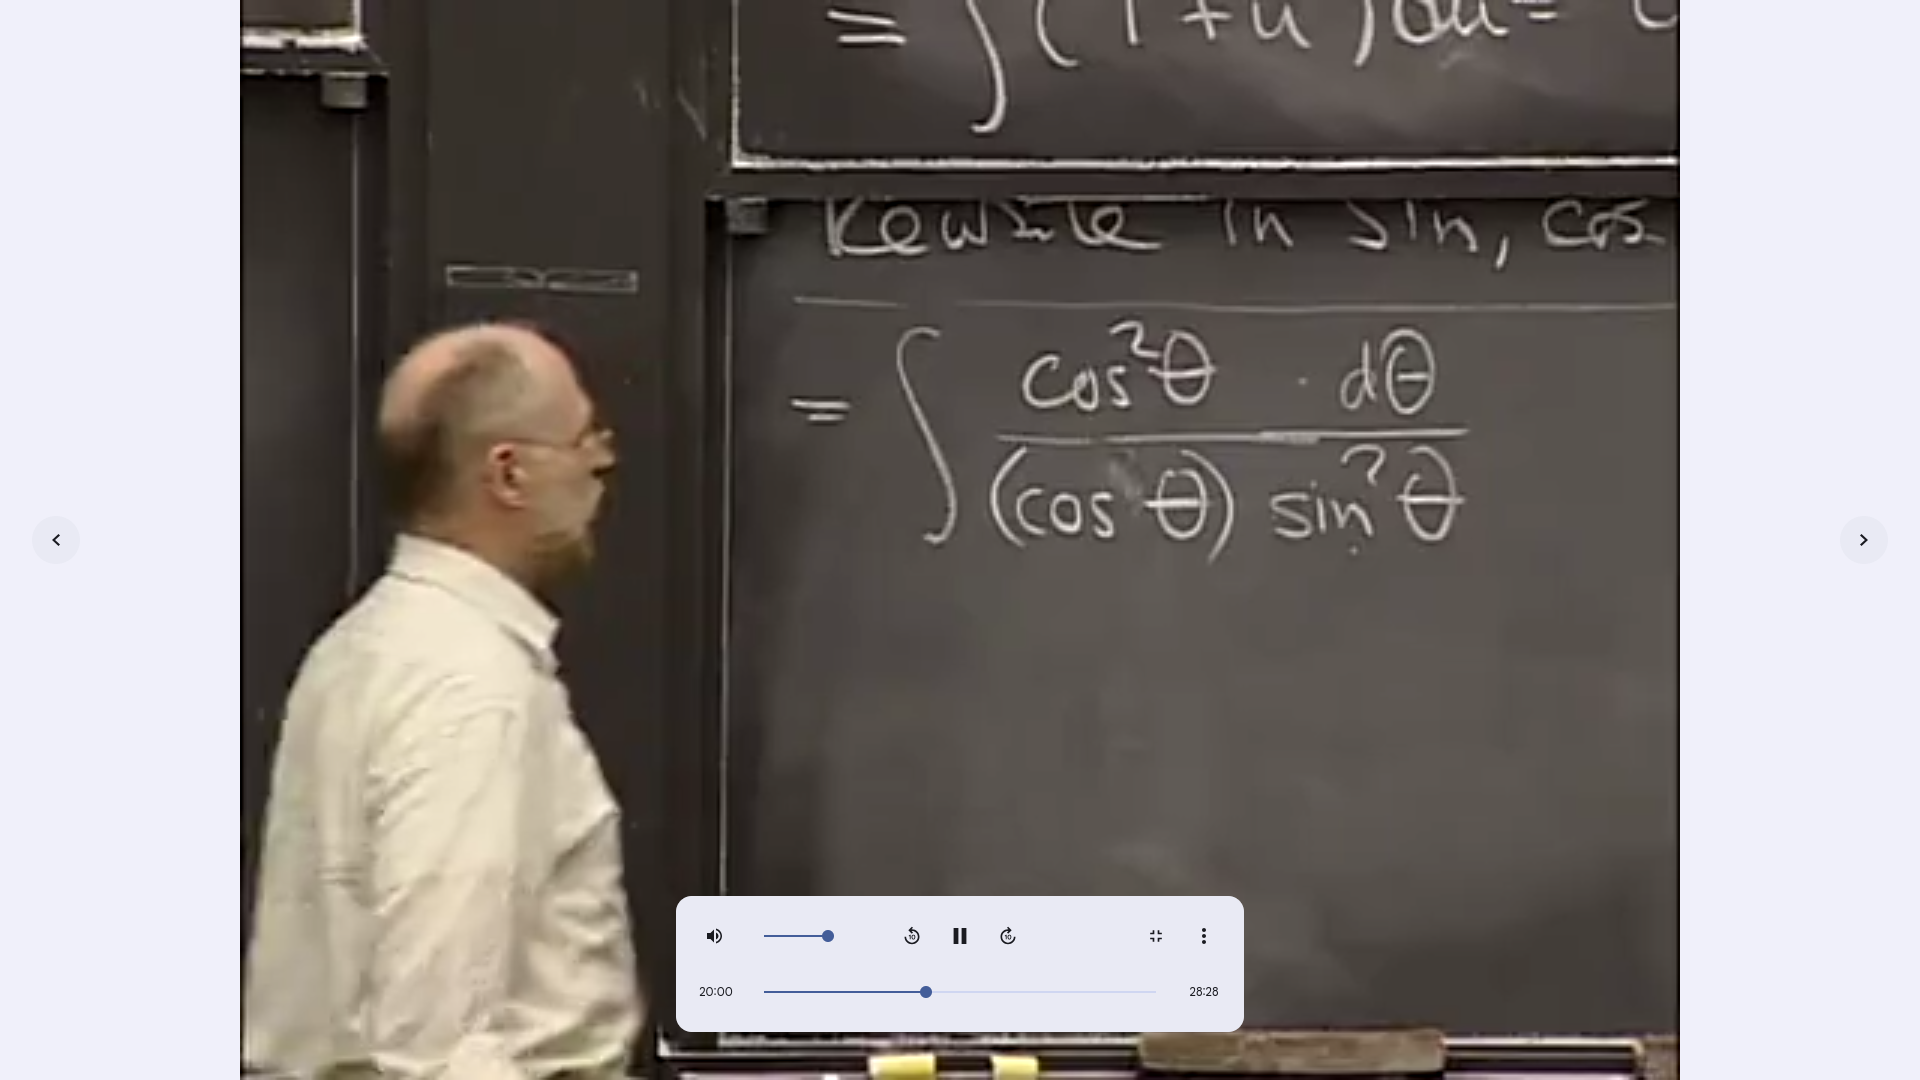 = ∫(1+u²)du =
Rewrite in sin, cos
= ∫ cos²θ · dθ
(cos θ) sin²θ
20:00 28:28